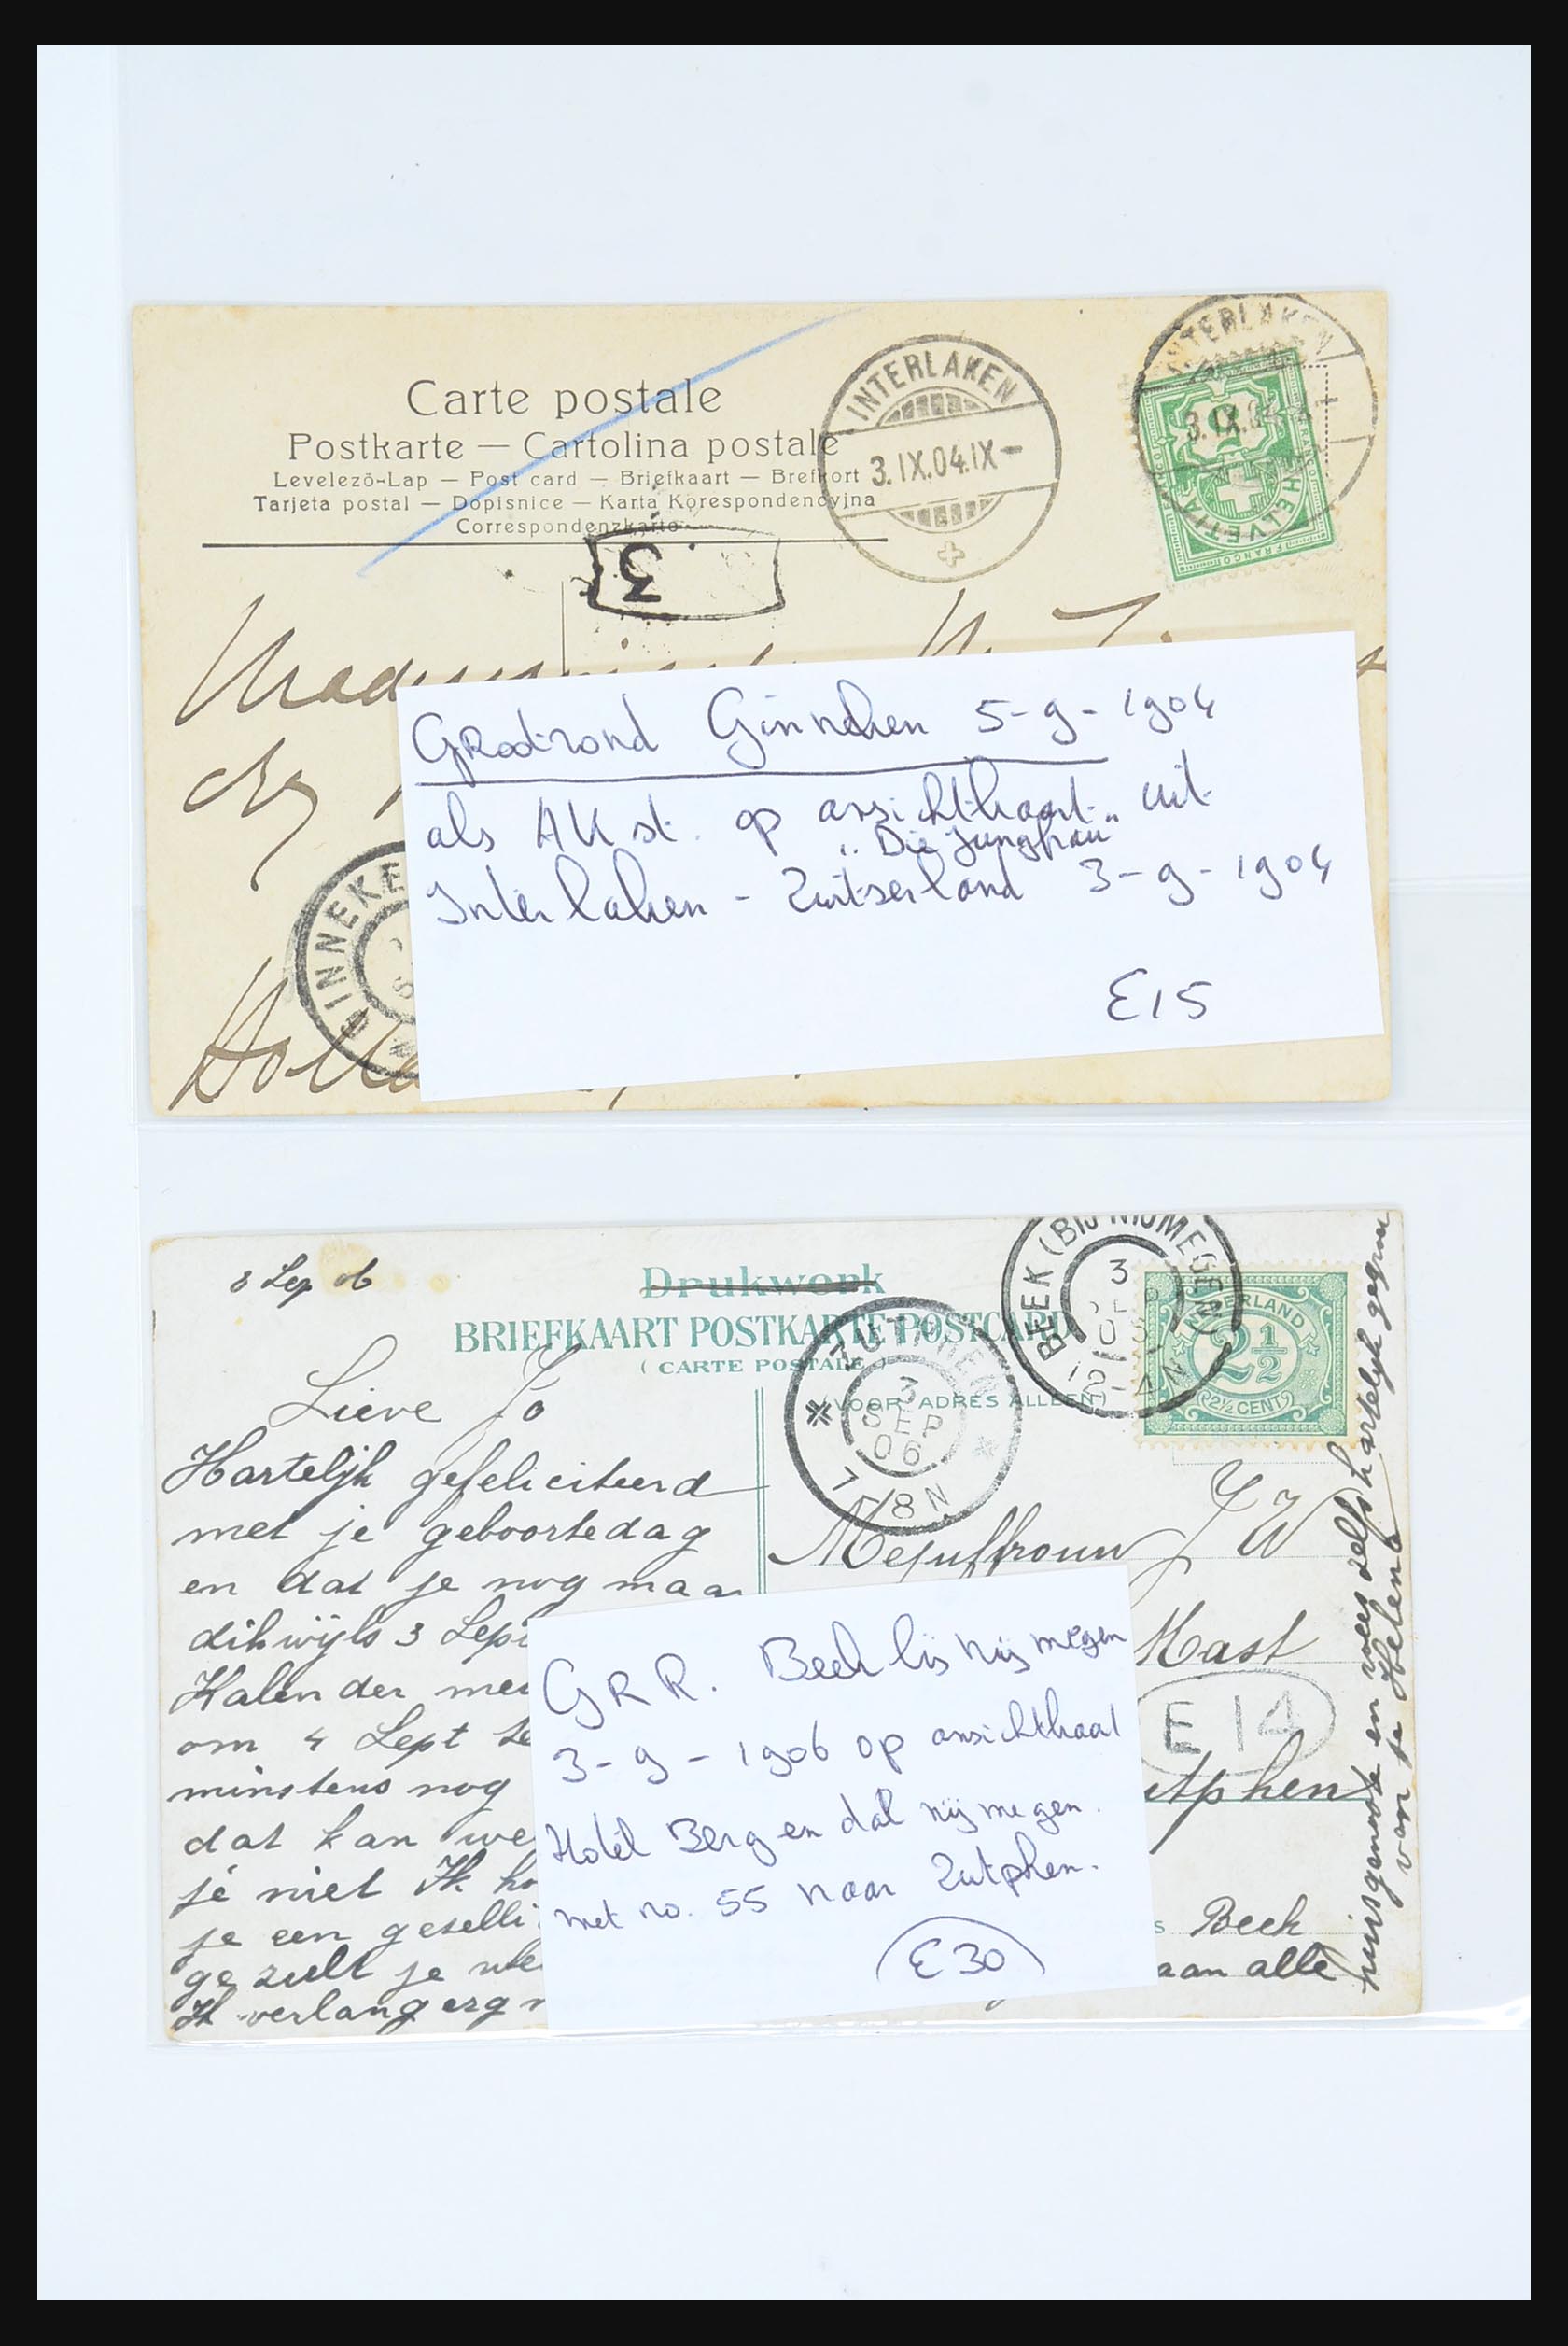 Carte postale
Postkarte — Cartolina postale
Levelezö-Lap — Post card — Briefkaart — Brefkort
Tarjeta postal — Dopisnice — Karta Korespondencyjna
Correspondenzkarte
INTERLAKEN
3.IX.04.IX-
INTERLAKEN
3.IX.04
HELVETIA
FRANCO
3
Grootrond Ginneken 5-9-1904
als AK st. op ansichtkaart uit
"Die Jungfrau"
Interlaken - Zwitserland 3-9-1904
E15
GINNEKE
Holla
3 Sep 06
Drukwerk
BRIEFKAART POSTKARTE POSTCARD
(CARTE POSTALE)
(VOOR ADRES ALLEEN)
BEEK (BIJ NIJMEGEN)
3
12-4N
NEDERLAND
2½
2½ CENT
ZUTPHEN
3
SEP
06
7-8N
Lieve Jo
Hartelijk gefeliciteerd
met je geboortedag
en dat je nog maar
dikwijls 3 Sept
Kalender me
om 4 Sept
minstens nog
dat kan we
je niet Ik ho
je een geselli
ge zult je we
Ik verlang erg
Mejuffrouw J W
Mast
E 14
utphen
s Beek
aan alle
huisgenoote en wees zelf hartelijk gegroet
van je Helena
GRR. Beek bij Nijmegen
3-9-1906 op ansichtkaart
Hotel Berg en dal Nijmegen.
met no. 55 naar Zutphen.
E30